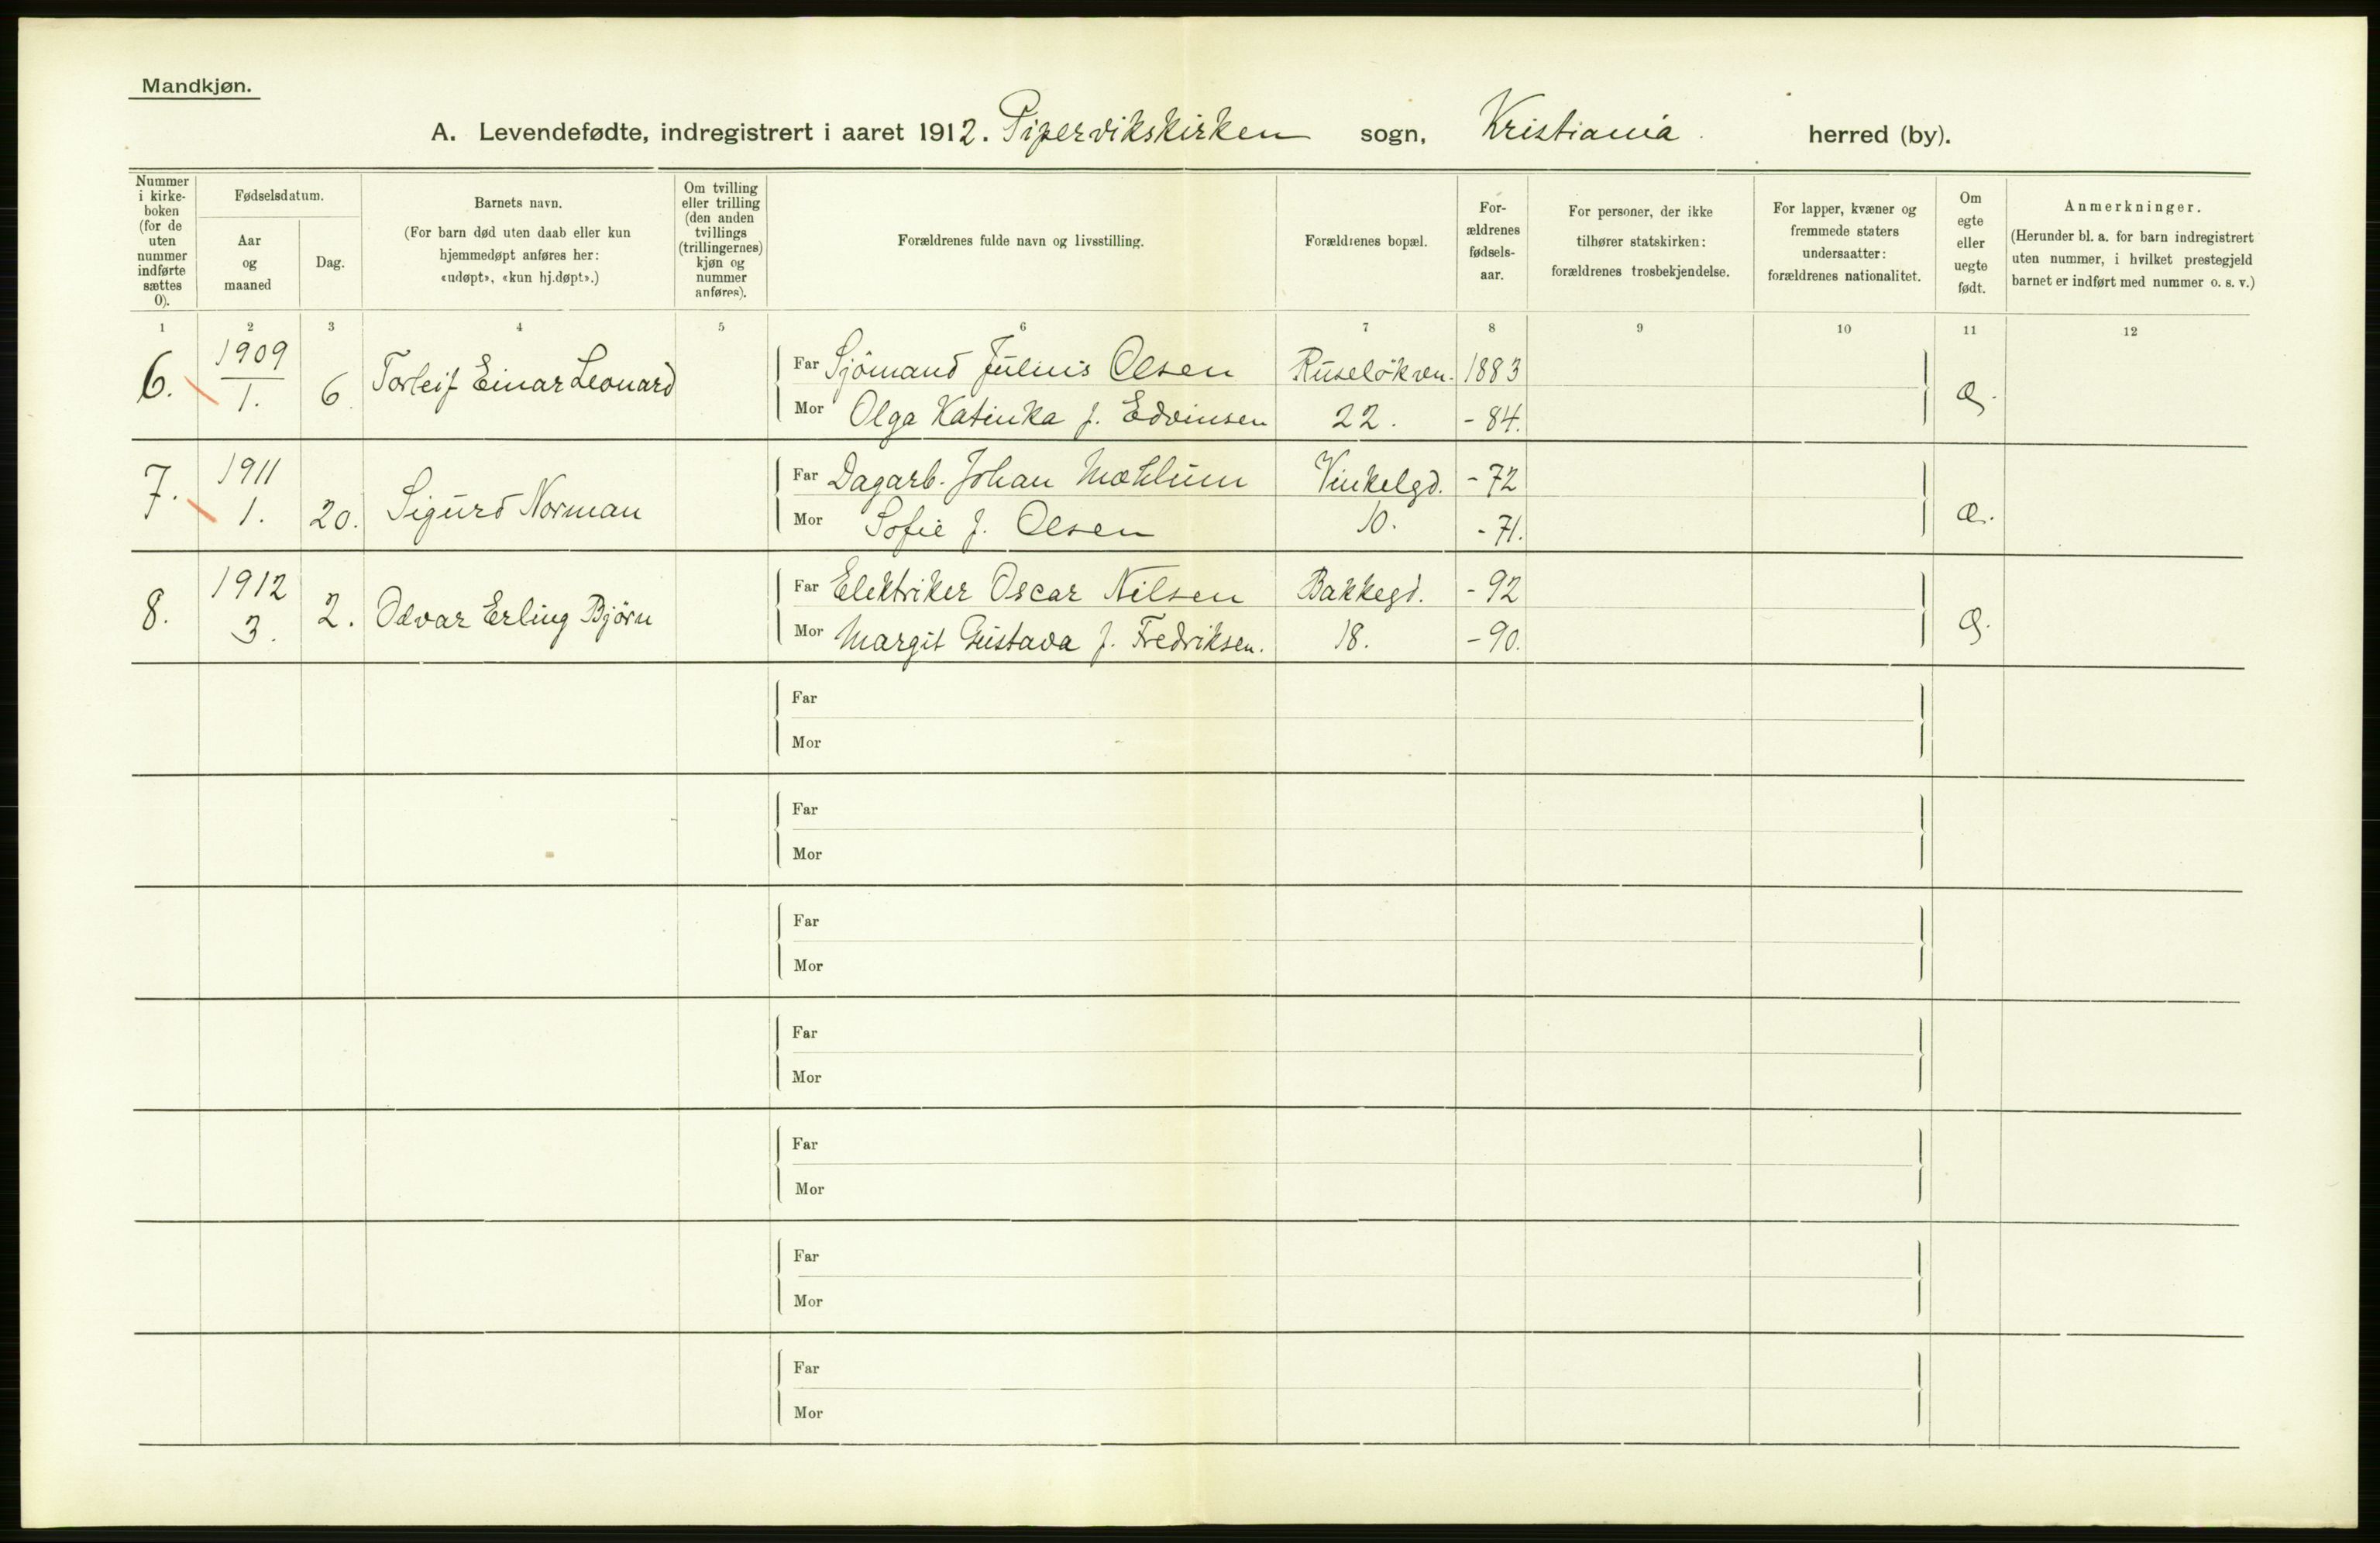 Mandkjøn.
A. Levendefødte, indregistrert i aaret 1912. Pipervikskirken sogn, Kristiania herred (by).
Nummer i kirke-boken (for de uten nummer indførte sættes 0).
Fødselsdatum.
Aar og maaned
Dag.
Barnets navn.
(For barn død uten daab eller kun hjemmedøpt anføres her: «udøpt», «kun hj.døpt».)
Om tvilling eller trilling (den anden tvillings (trillingernes) kjøn og nummer anføres).
Forældrenes fulde navn og livsstilling.
Forældrenes bopæl.
For-ældrenes fødsels-aar.
For personer, der ikke tilhører statskirken: forældrenes trosbekjendelse.
For lapper, kvæner og fremmede staters undersaatter: forældrenes nationalitet.
Om egte eller uegte født.
Anmerkninger.
(Herunder bl. a. for barn indregistrert uten nummer, i hvilket prestegjeld barnet er indført med nummer o. s. v.)
1 2 3 4 5 6 7 8 9 10 11 12
6. 1909 1. 6. Torleif Einar Leonard
Far Sjömand Julius Olsen Ruseløkvn. 1883
Mor Olga Katinka f. Edvinsen 22. - 84.
7. 1911 1. 20. Sigurd Norman
Far Dagarb. Johan Mæhlum Vinkelgd. - 72
Mor Sofie f. Olsen 10. - 71.
8. 1912 3. 2. Odvar Erling Bjørn
Far Elektriker Oscar Nilsen Bakkegd. - 92
Mor Margit Gustava f. Fredriksen. 18. - 90.
Far
Mor
Far
Mor
Far
Mor
Far
Mor
Far
Mor
Far
Mor
Far
Mor